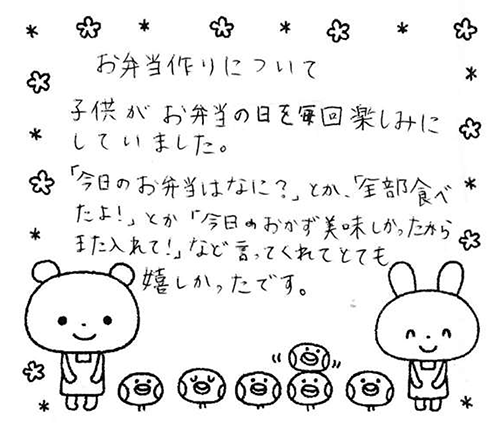 お弁当作りについて
子供がお弁当の日を毎回楽しみに
していました。
「今日のお弁当はなに？」とか、「全部食べ
たよ！」とか「今日のおかず美味しかったから
また入れて！」など言ってくれてとても
嬉しかったです。